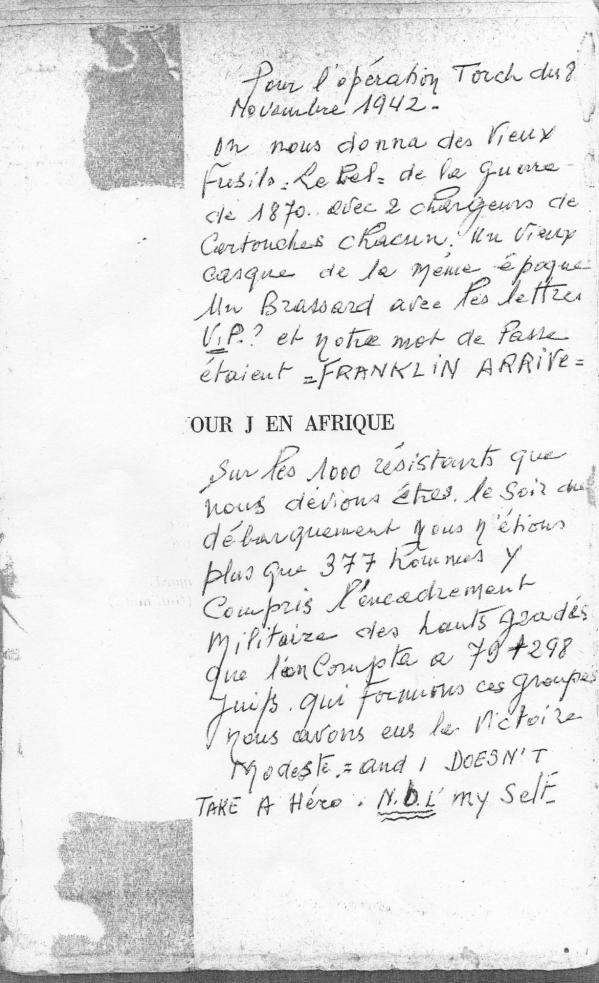 Pour l'opération Torch du 8
Novembre 1942 -
On nous donna des Vieux
Fusils = Le Bel = de la guerre
de 1870. avec 2 chargeurs de
Cartouches chacun. Un Vieux
casque de la même époque
Un Brassard avec les lettres
V.P.? et notre mot de Passe
étaient = FRANKLIN ARRIVE =
OUR J EN AFRIQUE
Sur les 1000 résistants que
nous dévions êtres. le Soir du
débarquement nous n'étions
plus que 377 hommes y
Compris l'encadrement
Militaire des hauts gradés
que l'on Compta a 79 + 298
Juifs. qui formions ces groupes
nous avons eus la Victoire
Modeste. = and I DOESN'T
TAKE A Héro. N.D.L' my Self